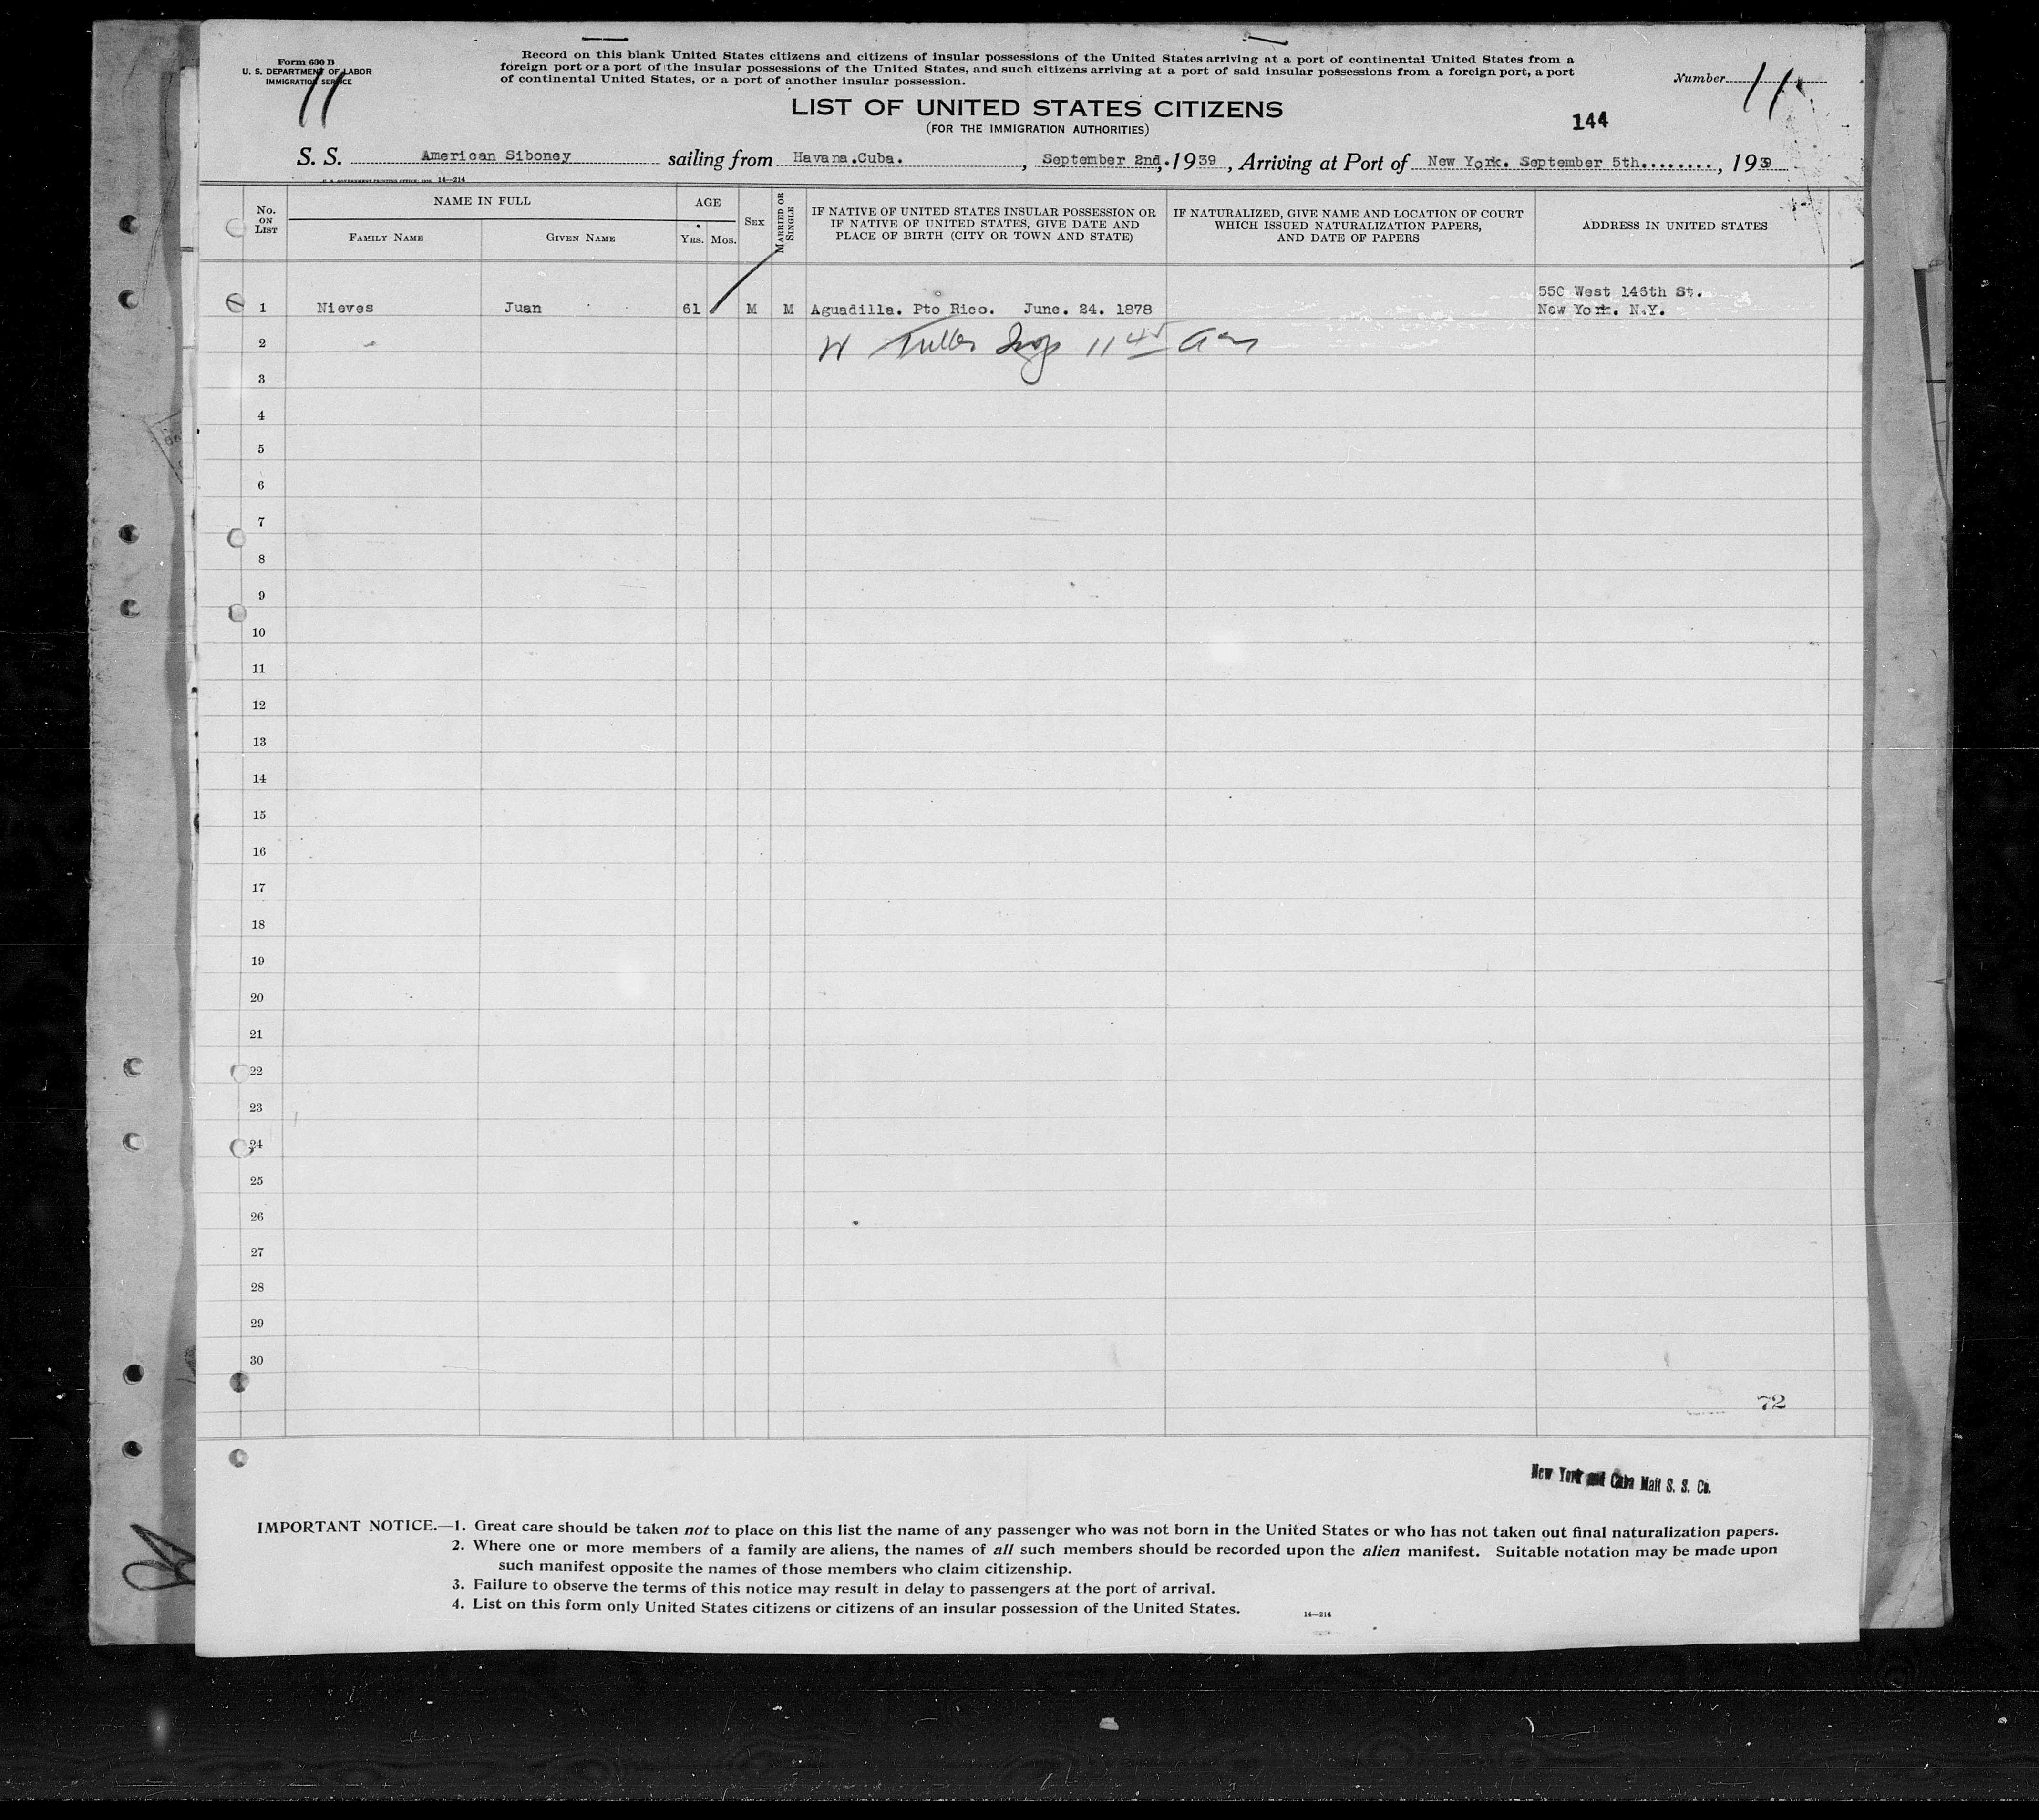 Form 630 B
U. S. DEPARTMENT OF LABOR
IMMIGRATION SERVICE
11
Record on this blank United States citizens and citizens of insular possessions of the United States arriving at a port of continental United States from a
foreign port or a port of the insular possessions of the United States, and such citizens arriving at a port of said insular possessions from a foreign port, a port
of continental United States, or a port of another insular possession.
Number 11
LIST OF UNITED STATES CITIZENS
(FOR THE IMMIGRATION AUTHORITIES)
144
S. S. American Siboney sailing from Havana.Cuba. , September 2nd, 1939 , Arriving at Port of New York. September 5th........ , 1939
14—214
No. ON LIST
NAME IN FULL
FAMILY NAME
GIVEN NAME
AGE
YRS. MOS.
SEX
MARRIED OR SINGLE
IF NATIVE OF UNITED STATES INSULAR POSSESSION OR
IF NATIVE OF UNITED STATES, GIVE DATE AND
PLACE OF BIRTH (CITY OR TOWN AND STATE)
IF NATURALIZED, GIVE NAME AND LOCATION OF COURT
WHICH ISSUED NATURALIZATION PAPERS,
AND DATE OF PAPERS
ADDRESS IN UNITED STATES
550 West 146th St.
1 Nieves Juan 61 M M Aguadilla. Pto Rico. June. 24. 1878 New York. N.Y.
2 W Fuller Insp 11 45 am
3
4
5
6
7
8
9
10
11
12
13
14
15
16
17
18
19
20
21
22
23
24
25
26
27
28
29
30
72
New York and Cuba Mail S. S. Co.
IMPORTANT NOTICE.—1. Great care should be taken not to place on this list the name of any passenger who was not born in the United States or who has not taken out final naturalization papers.
2. Where one or more members of a family are aliens, the names of all such members should be recorded upon the alien manifest. Suitable notation may be made upon
such manifest opposite the names of those members who claim citizenship.
3. Failure to observe the terms of this notice may result in delay to passengers at the port of arrival.
4. List on this form only United States citizens or citizens of an insular possession of the United States.
14—214